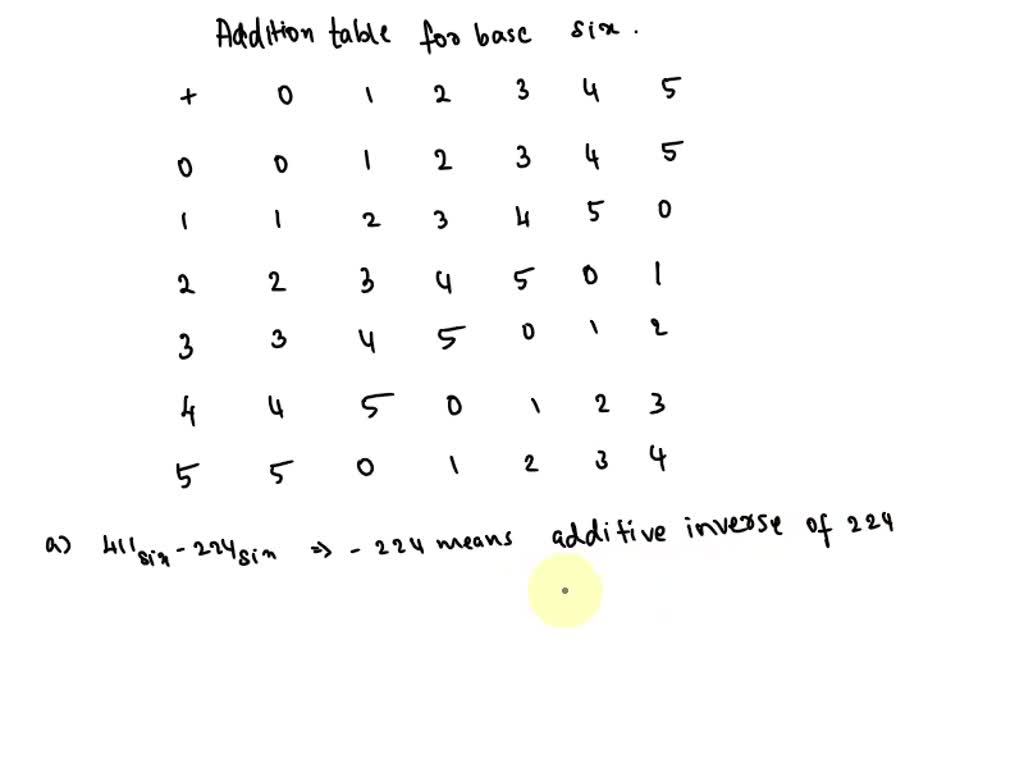 Addition table for base six.
+ 0 1 2 3 4 5
0 0 1 2 3 4 5
1 1 2 3 4 5 0
2 2 3 4 5 0 1
3 3 4 5 0 1 2
4 4 5 0 1 2 3
5 5 0 1 2 3 4
a) 411six - 224six ⇒ - 224 means additive inverse of 224